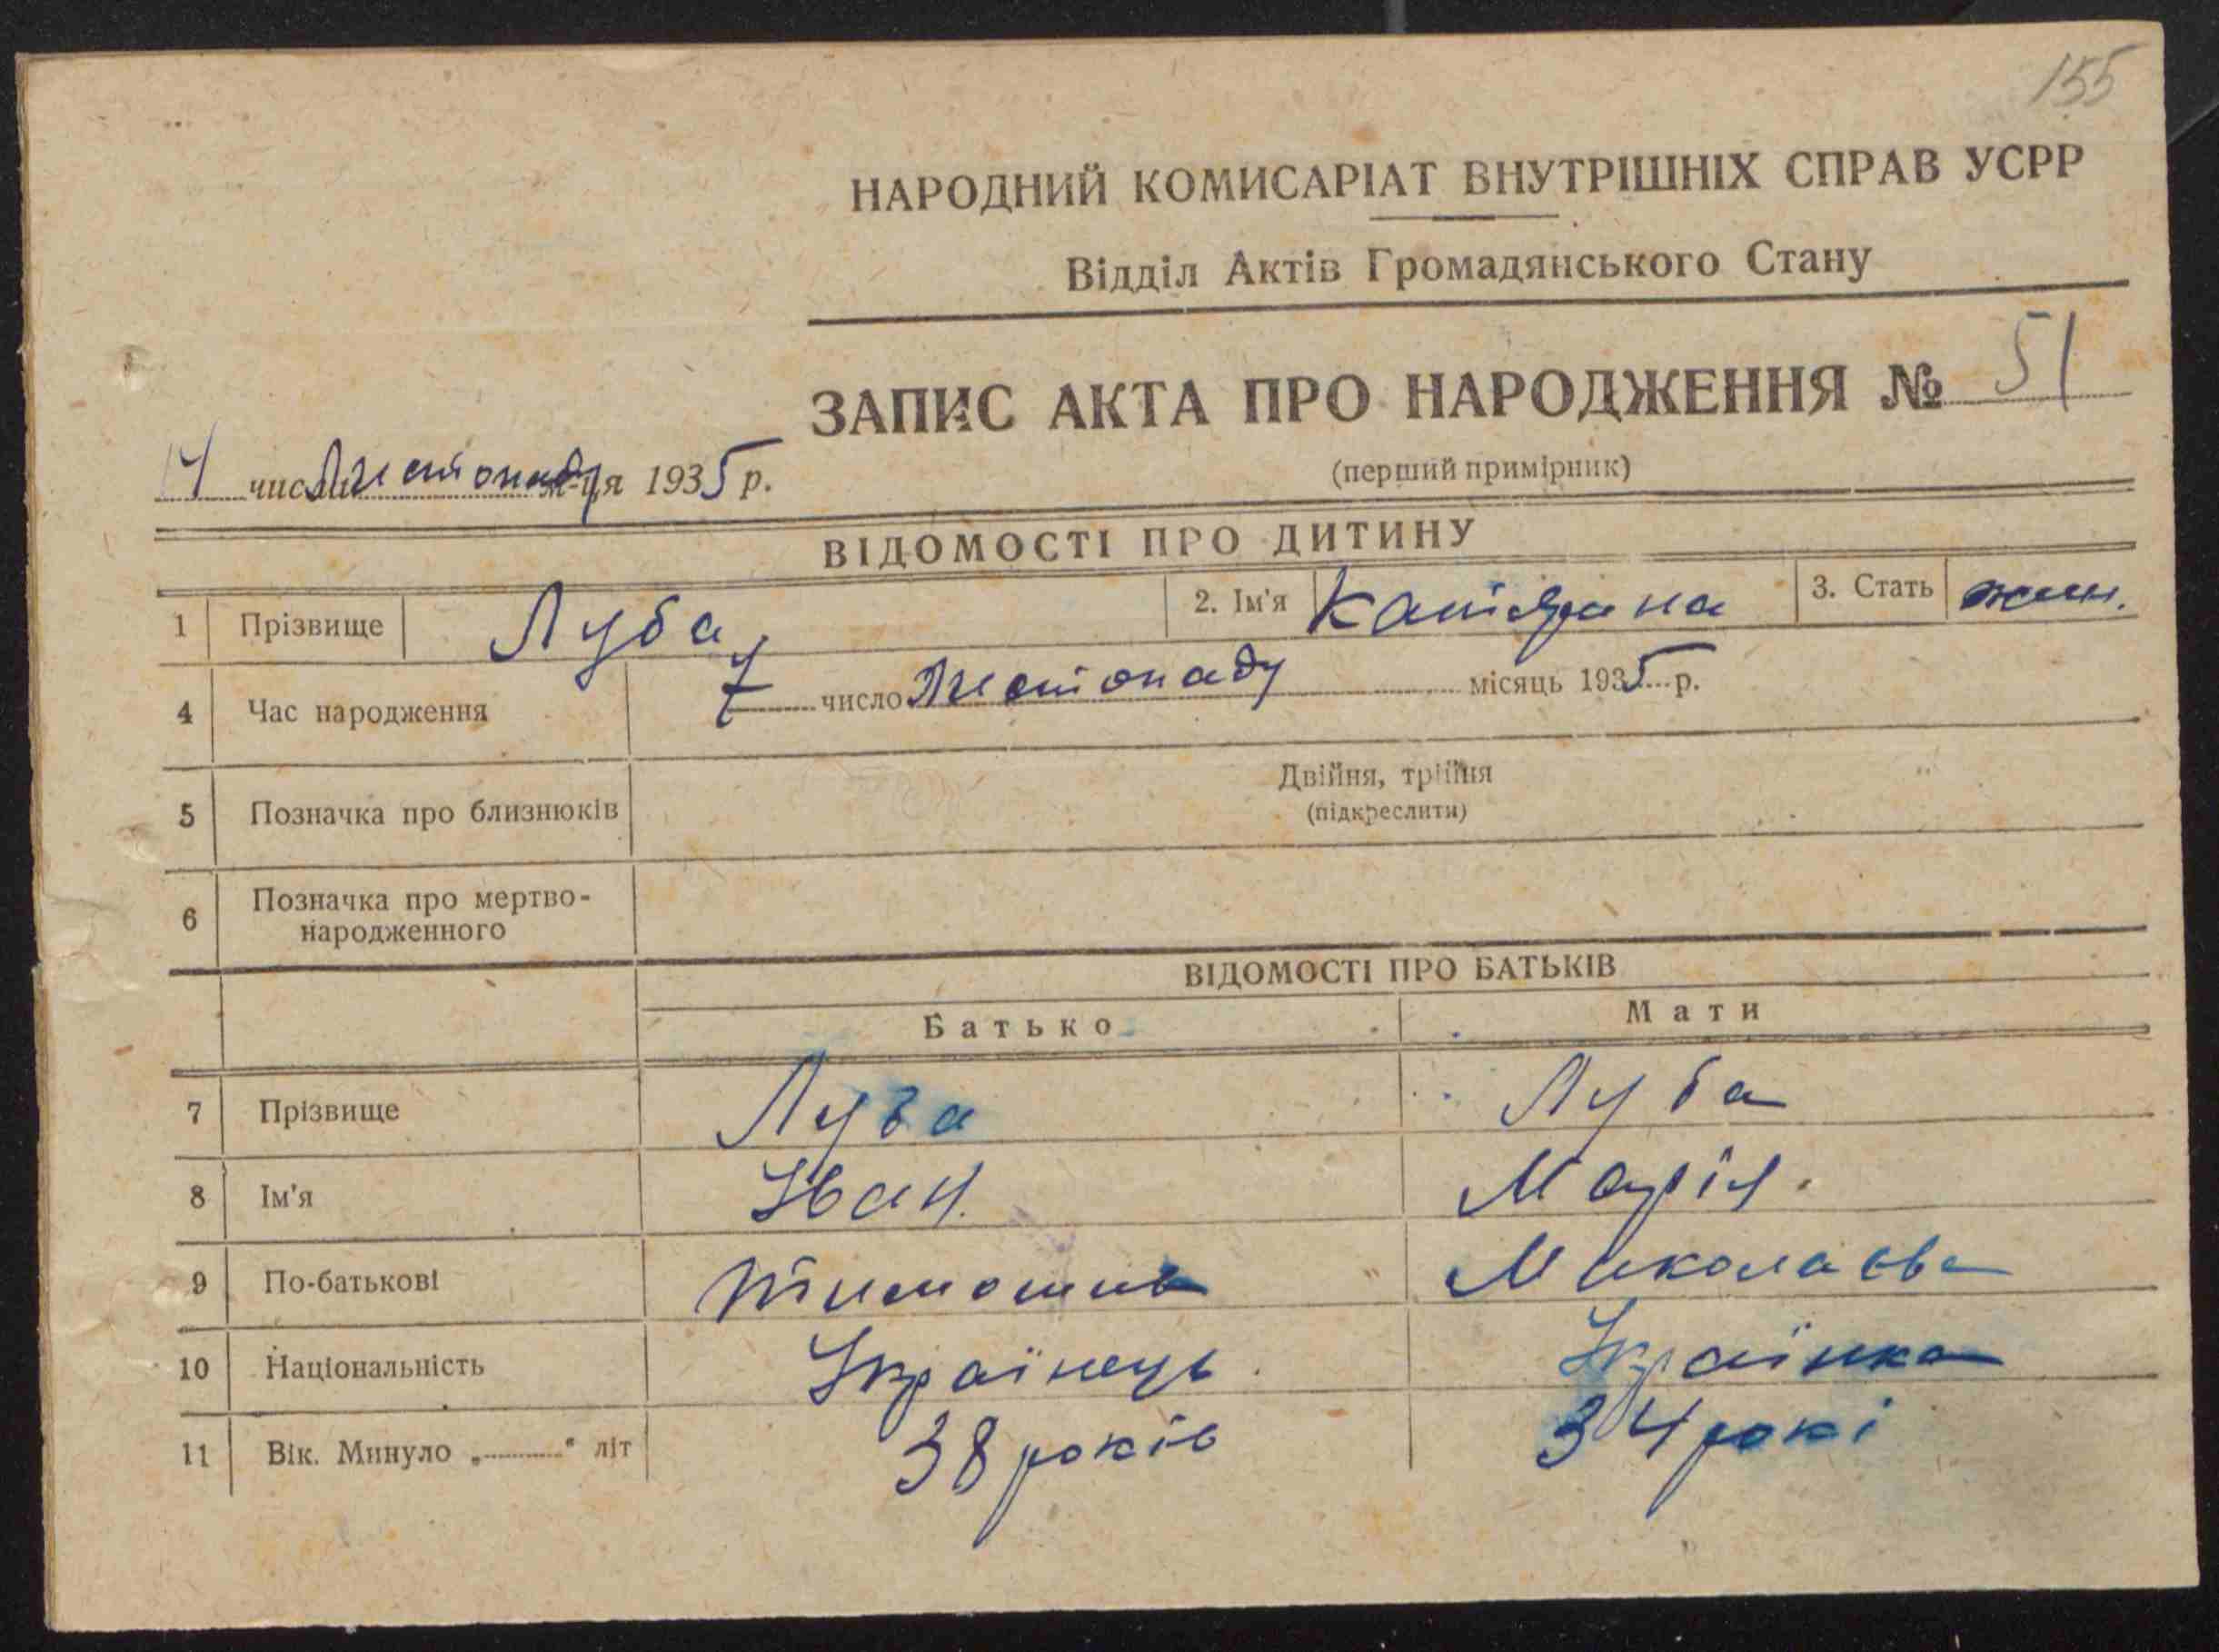 155
НАРОДНИЙ КОМИСАРІАТ ВНУТРІШНІХ СПРАВ УСРР
Відділ Актів Громадянського Стану
ЗАПИС АКТА ПРО НАРОДЖЕННЯ № 51
(перший примірник)
14 числа Листопаду м-ця 1935 р.
ВІДОМОСТІ ПРО ДИТИНУ
1 Прізвище Луба 2. Ім'я Катерина 3. Стать жин.
4 Час народження 7 число Листопаду місяць 1935 р.
5 Позначка про близнюків Двійня, трійня
(підкреслити)
6 Позначка про мертво-
народженного
ВІДОМОСТІ ПРО БАТЬКІВ
Батько Мати
7 Прізвище Луба Луба
8 Ім'я Іван. Марія.
9 По-батькові Тимошив Миколаєва
10 Національність Українець Українка
11 Вік. Минуло „..........“ літ 38 років 34 рокі